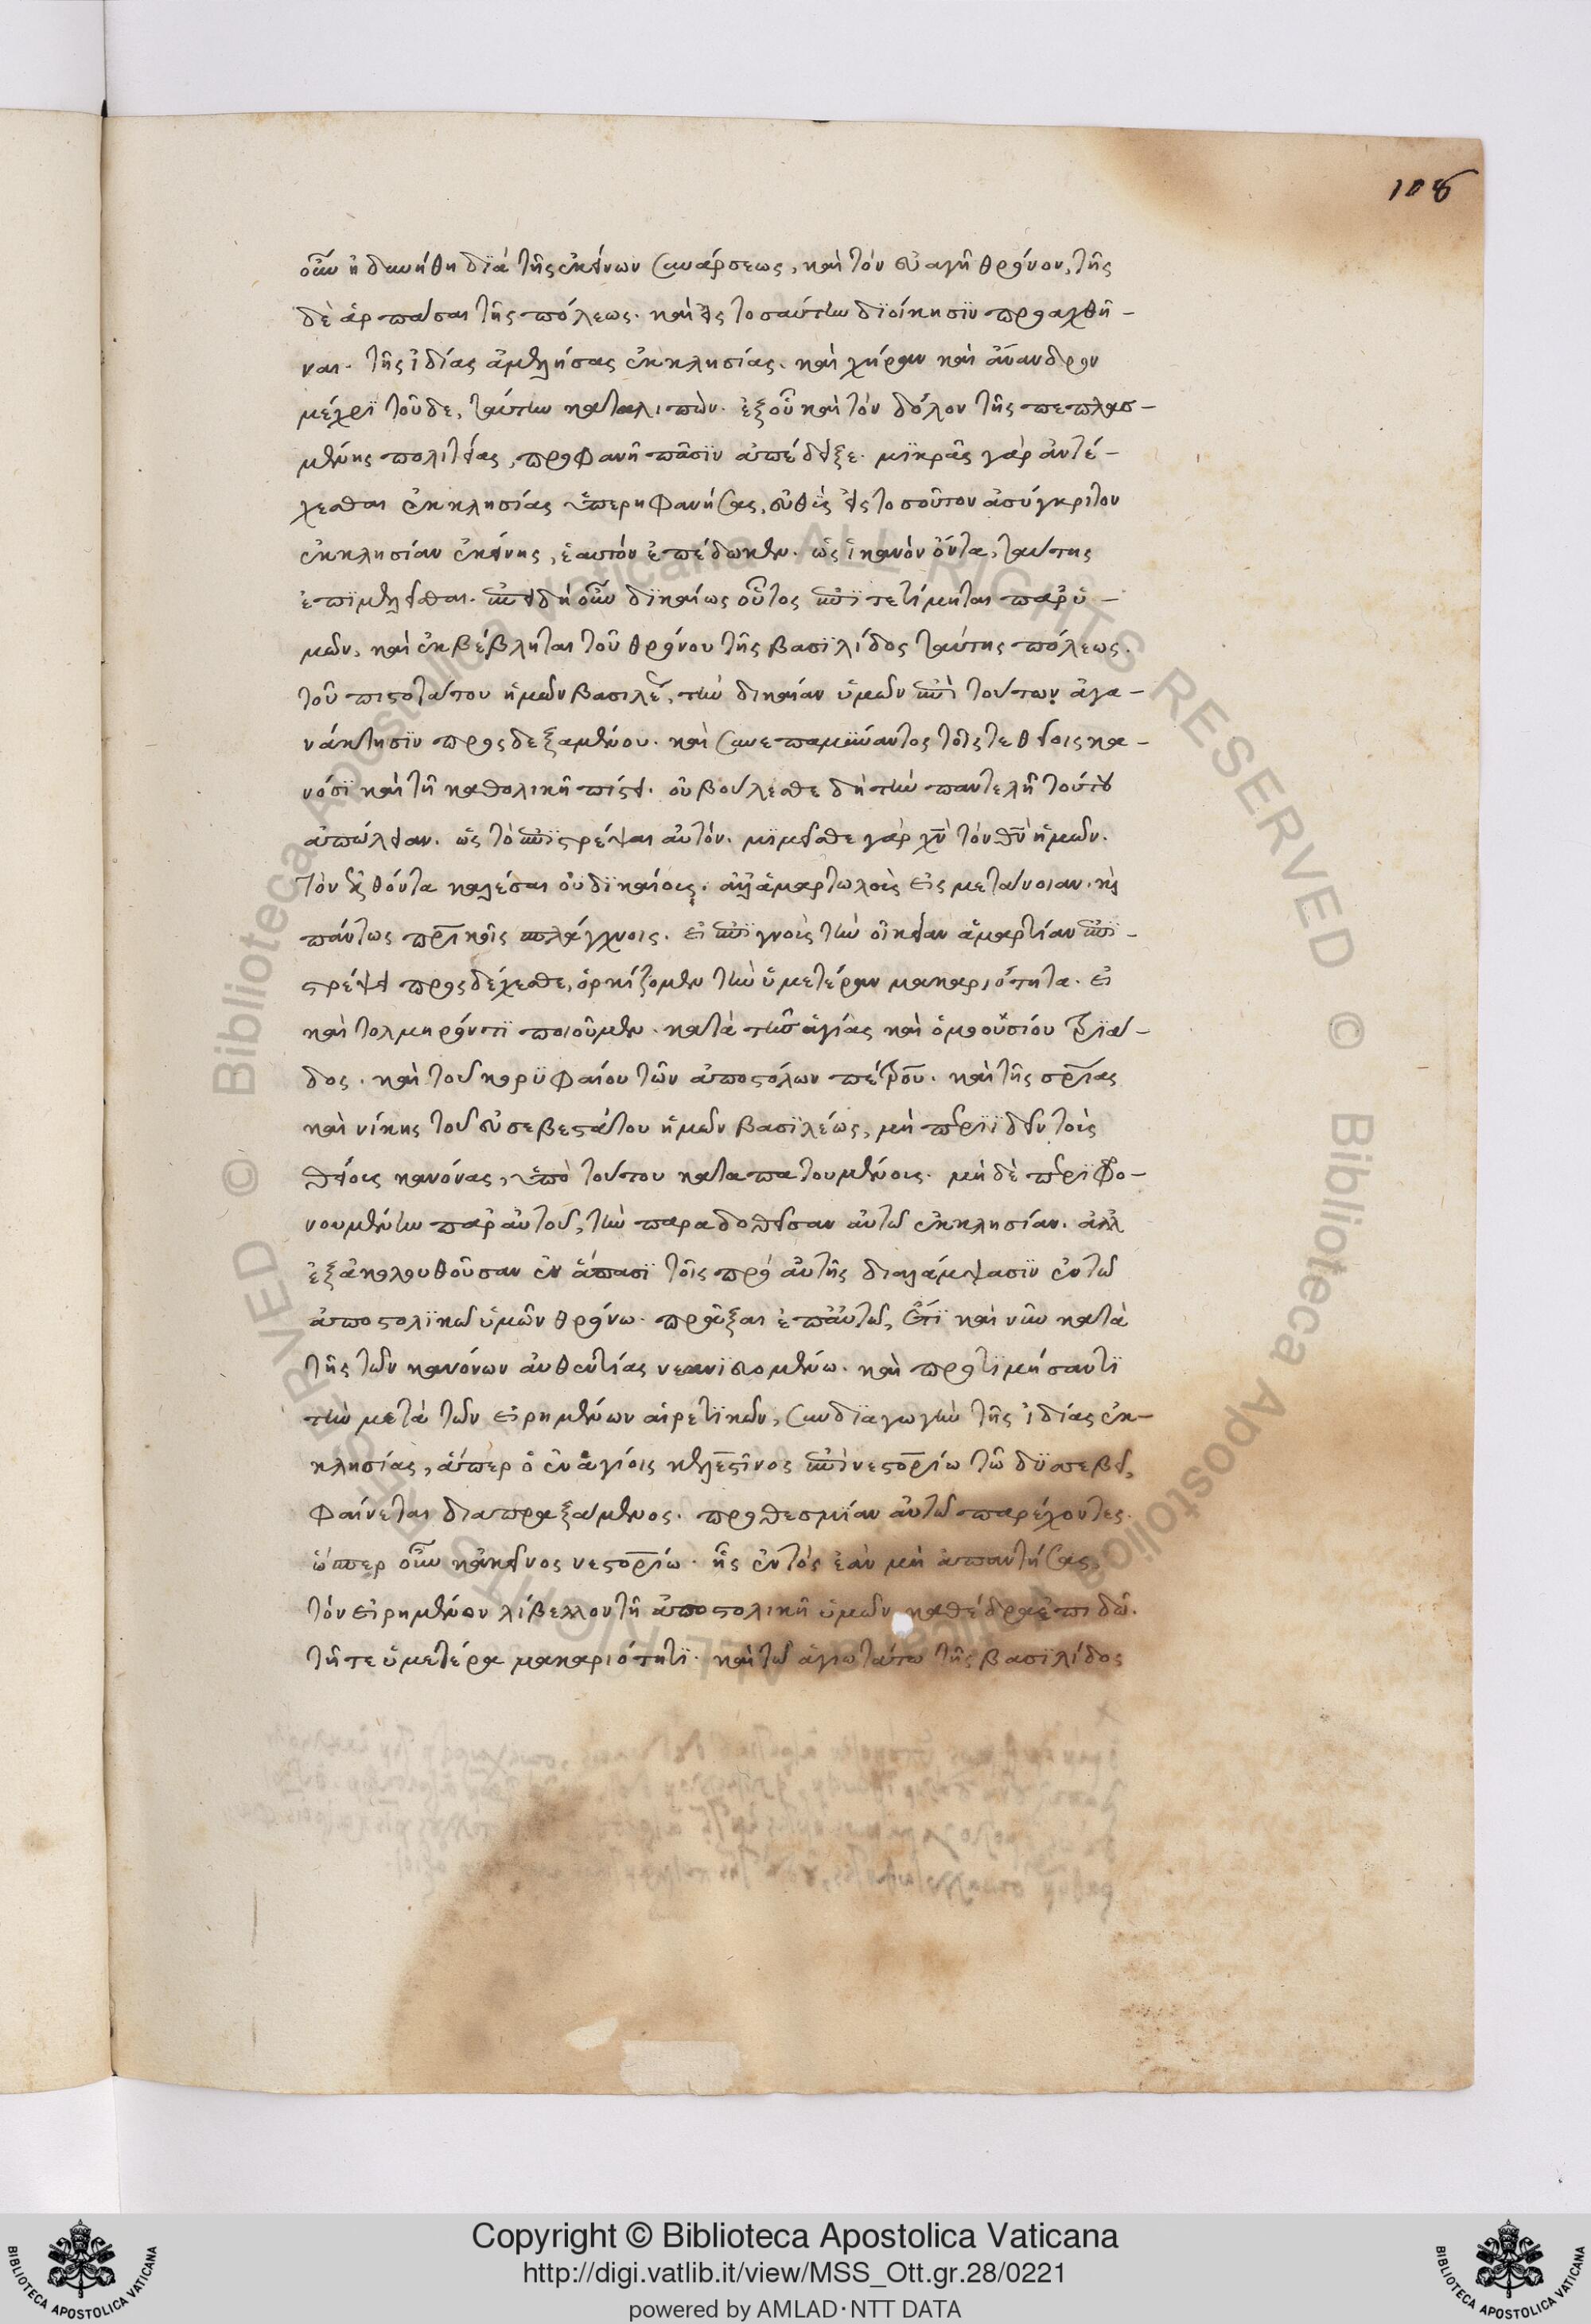 108
οὖν ἠδυνήθη διὰ τῆς ἐκείνων συνάρσεως, καὶ τὸν εὐαγῆ θρόνον, τῆς
δὲ ἁρπάσαι τῆς πόλεως. καὶ εἰς τοσαύτην διοίκησϊν προαχθῆ-
ναι. τῆς ἰδίας ἀμελήσας ἐκκλησίας. καὶ χήραν καὶ ἄνανδρον
μέχρϊ τοῦδε, ταύτην καταλιπών. ἐξ οὗ καὶ τὸν δόλον τῆς πεπλασ-
μένης πολιτείας, προφανῆ πᾶσϊν ἀπέδειξε. μϊκρᾶς γὰρ ἀντέ-
χεσθαι ἐκκλησίας ὑπερηφανήσας, εὐθὺς εἰς τοσοῦτον ἀσύγκριτον
ἐκκλησίαν ἐκείνης, ἑαυτὸν ἐπέδωκεν. ὡς ἱκανὸν ὄντα, ταύτης
ἐπϊμελεῖσθαι. ἐπειδὴ οὖν δϊκαίως οὗτος ἐπϊτετίμηται παρ' ὑ-
μῶν, καὶ ἐκβέβληται τοῦ θρόνου τῆς βασϊλίδος ταύτης πόλεως.
τοῦ πιστοτάτου ἡμῶν βασιλέως, τὴν δικαίαν ὑμῶν ἐπὶ τούτων ἀγα-
νάκτησϊν προσδεξαμένου. καὶ συνεπαμύναντος τοῖς τε θείοις κα-
νόσϊ καὶ τῇ καθολικῇ πίστει. οὐ βούλεσθε δὴ τὴν παντελῆ τούτου
ἀπώλειαν. ὡς τὸ ἐπϊστρέψαι αὐτόν. μϊμεῖσθε γὰρ χν τὸν θν ἡμῶν.
τὸν ἐλθόντα καλέσαι οὐ δϊκαίους, ἀλλ' ἁμαρτωλοὺς εἰς μετάνοιαν. καὶ
πάντως πατρικοῖς σπλάγχνοις. εἰ ἐπϊγνοὺς τὴν οἰκείαν ἁμαρτίαν ἐπϊ-
στρέψει προσδέχεσθε, ὁρκίζομεν τὴν ὑμετέραν μακαριότητα. εἰ
καὶ τολμηρόν τϊ ποιοῦμεν. κατὰ τῆς ἁγίας καὶ ὁμοουσίου τρϊά-
δος. καὶ τοῦ κορϋφαίου τῶν ἀποστόλων πέτρου. καὶ τῆς σρίας
καὶ νίκης τοῦ εὐσεβεστάτου ἡμῶν βασϊλέως, μὴ περιϊδεῖν τοὺς
θείους κανόνας, ὑπὸ τούτου καταπατουμένους. μὴ δὲ περϊφρο-
νουμένην παρ' αὐτοῦ, τὴν παραδοθεῖσαν αὐτῷ ἐκκλησίαν. ἀλλ'
ἐξακολουθοῦσαν ἐν ἅπασϊ τοῖς πρὸ αὐτῆς διαλάμψασϊν ἐν τῷ
ἀποστολϊκῷ ὑμῶν θρόνῳ. πρᾶξαι ἐπ' αὐτῷ, ἔτϊ καὶ νῦν κατὰ
τῆς τῶν κανόνων αὐθεντίας νεανϊευομένῳ. καὶ προτϊμήσαντϊ
τὴν μετὰ τῶν εἰρημένων αἱρετϊκῶν, συνδϊαγωγὴν τῆς ἰδίας ἐκ-
κλησίας, ἅπερ ὁ ἐν ἁγίοις κελεστῖνος ἐπὶ νεστορίῳ τῷ δϋσσεβεῖ,
φαίνεται διαπραξάμενος. προθεσμϊαν αὐτῷ παρέχοντες.
ὥσπερ οὖν κἀκεῖνος νεστορίῳ. ἧς ἐντὸς ἐὰν μὴ ἀπαντήσας,
τὸν εἰρημένον λίβελλον τῇ ἀποστολικῇ ὑμῶν καθέδρα ἐπιδῷ.
τῇ τε ὑμετέρα μακαριότητϊ. καὶ τῷ ἁγιωτάτῳ τῆς βασϊλίδος
© Biblioteca Apostolica Vaticana ALL RIGHTS RESERVED © Biblioteca Apostolica Vaticana ALL RIGHTS RESERVED
Copyright © Biblioteca Apostolica Vaticana
http://digi.vatlib.it/view/MSS_Ott.gr.28/0221
powered by AMLAD·NTT DATA
BIBLIOTECA APOSTOLICA VATICANA
BIBLIOTECA APOSTOLICA VATICANA